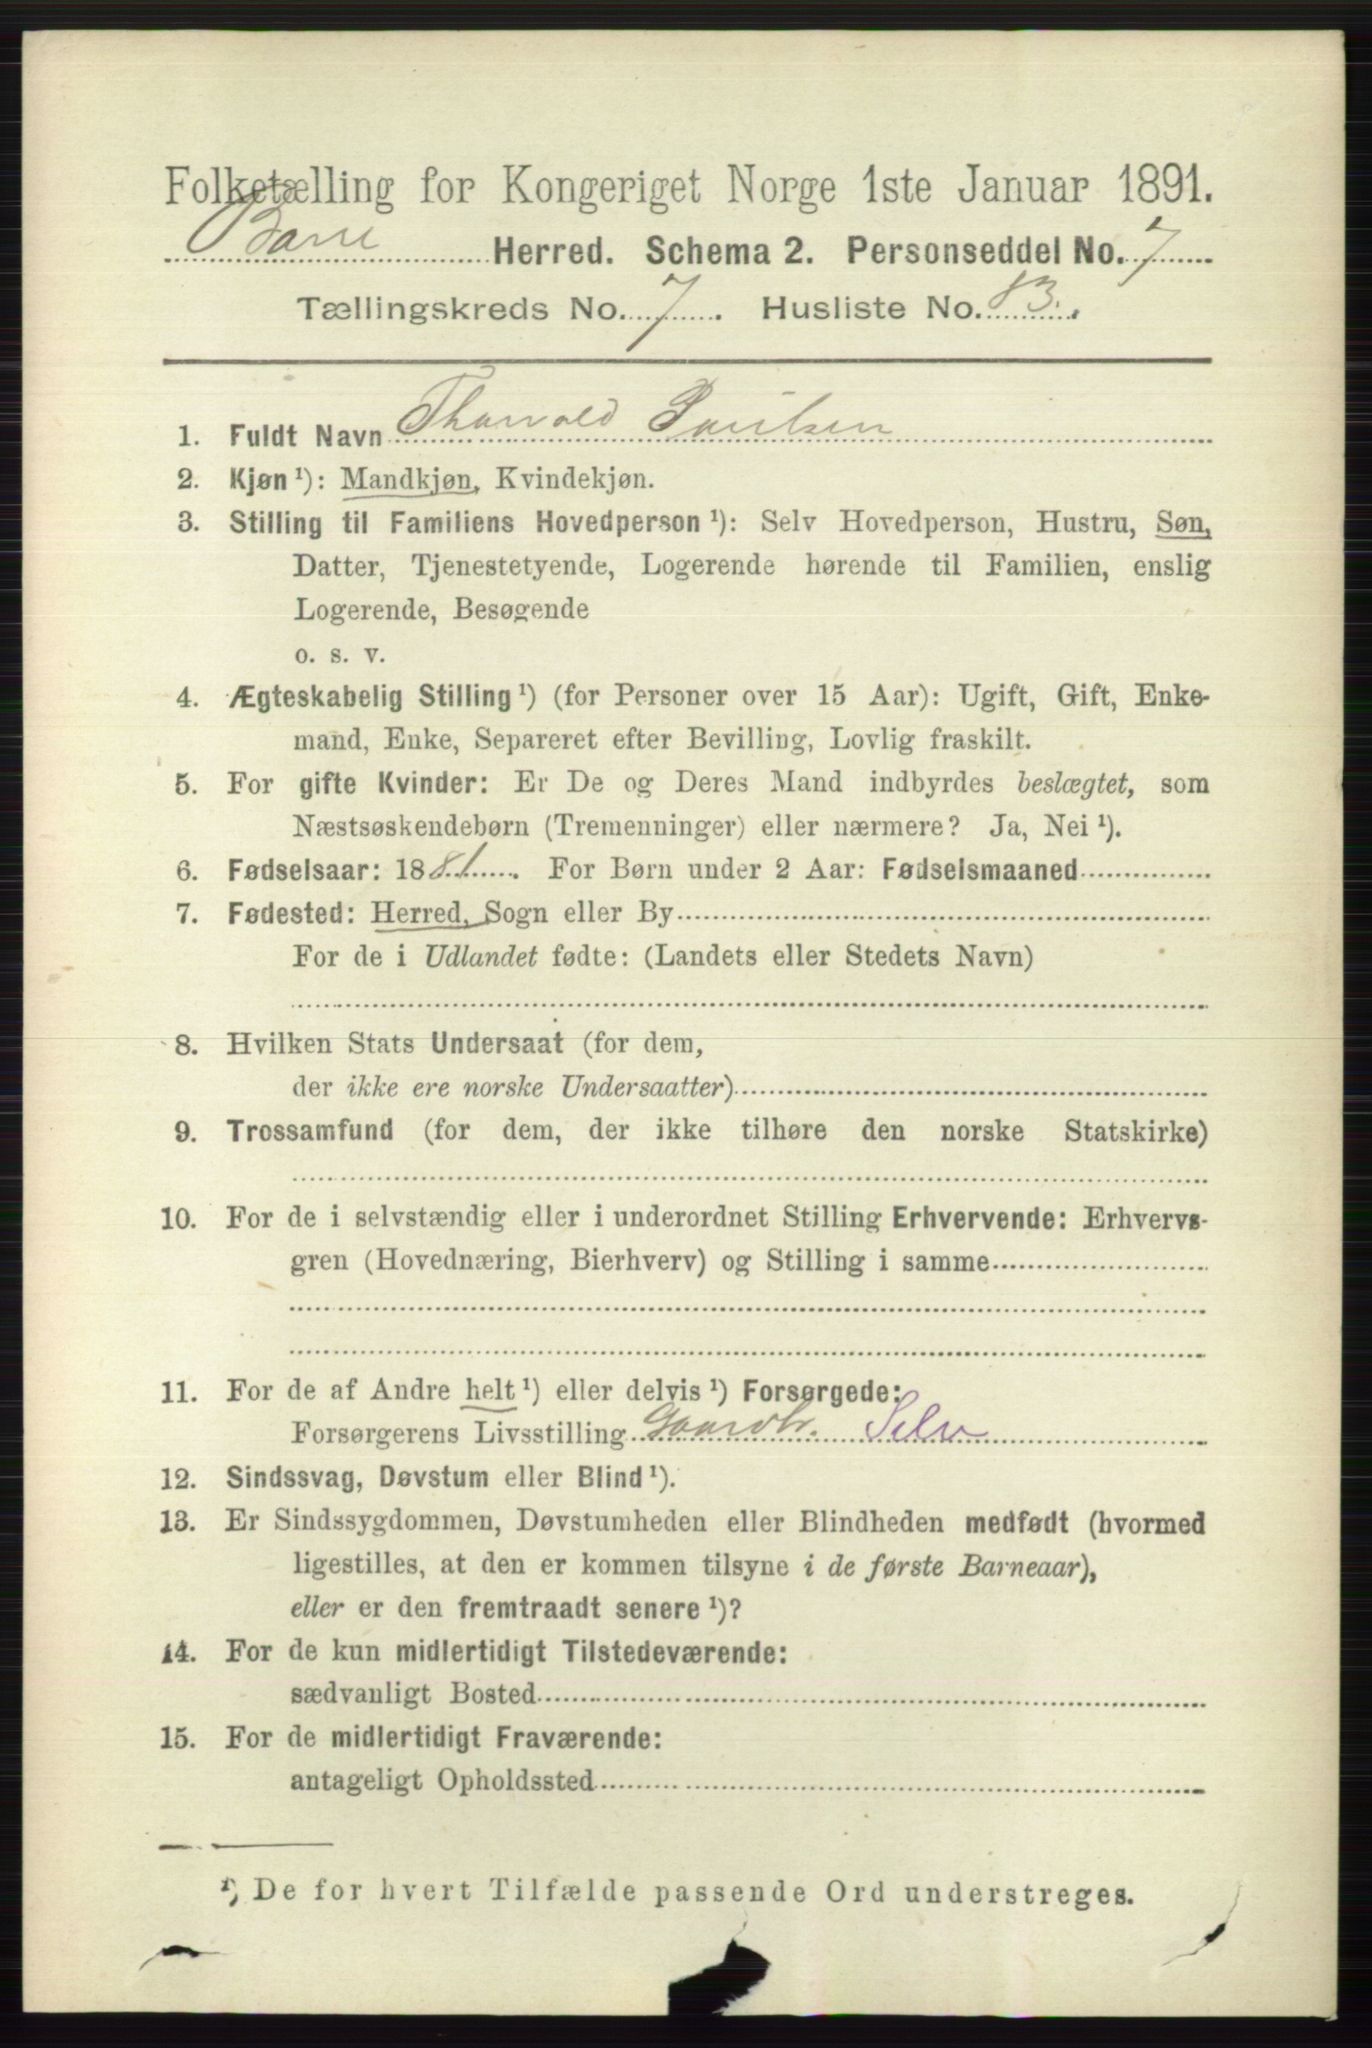 Folketælling for Kongeriget Norge 1ste Januar 1891.
Borre Herred. Schema 2. Personseddel No. 7
Tællingskreds No. 7. Husliste No. 83.
1. Fuldt Navn Thorvald Paulsen
2. Kjøn ¹): Mandkjøn, Kvindekjøn.
3. Stilling til Familiens Hovedperson ¹): Selv Hovedperson, Hustru, Søn,
Datter, Tjenestetyende, Logerende hørende til Familien, enslig
Logerende, Besøgende
o. s. v.
4. Ægteskabelig Stilling ¹) (for Personer over 15 Aar): Ugift, Gift, Enke-
mand, Enke, Separeret efter Bevilling, Lovlig fraskilt.
5. For gifte Kvinder: Er De og Deres Mand indbyrdes beslægtet, som
Næstsøskendebørn (Tremenninger) eller nærmere? Ja, Nei ¹).
6. Fødselsaar: 1881. For Børn under 2 Aar: Fødselsmaaned
7. Fødested: Herred, Sogn eller By
For de i Udlandet fødte: (Landets eller Stedets Navn)
8. Hvilken Stats Undersaat (for dem,
der ikke ere norske Undersaatter)
9. Trossamfund (for dem, der ikke tilhøre den norske Statskirke)
10. For de i selvstændig eller i underordnet Stilling Erhvervende: Erhvervs-
gren (Hovednæring, Bierhverv) og Stilling i samme
11. For de af Andre helt ¹) eller delvis ¹) Forsørgede:
Forsørgerens Livsstilling Gaardbr. Selv
12. Sindssvag, Døvstum eller Blind ¹).
13. Er Sindssygdommen, Døvstumheden eller Blindheden medfødt (hvormed
ligestilles, at den er kommen tilsyne i de første Barneaar),
eller er den fremtraadt senere ¹)?
14. For de kun midlertidigt Tilstedeværende:
sædvanligt Bosted
15. For de midlertidigt Fraværende:
antageligt Opholdssted
¹) De for hvert Tilfælde passende Ord understreges.